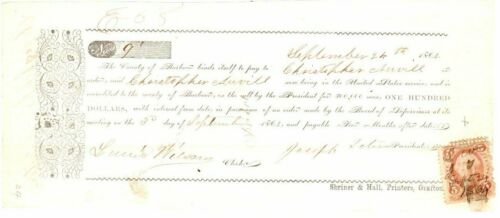 9
September 24th 1862
The County of Barbour binds itself to pay to Christopher
order, said Christopher now being in the United States service, and is
accredited to the county of Barbour, on the call by the President for 300,000 men, ONE HUNDRED
DOLLARS, with interest from date, in pursuance of an order made by the Board of Supervisors at its
meeting on the 9th day of September 1862 and payable Two Months after date.
Lewis Wilson Clerk. Joseph President
Shriner & Hall, Printers, Grafton.
5